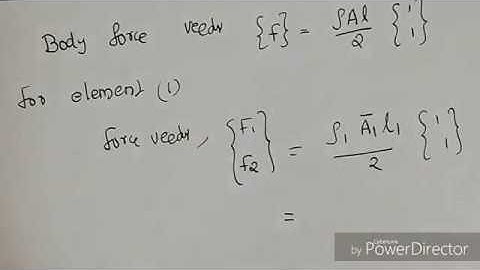 Body force vector {f} = ρAl/2 {1 1}
for element (1)
force vector, {F1 F2} = ρ1 Ā1 l1/2 {1 1}
=
by CyberLink PowerDirector